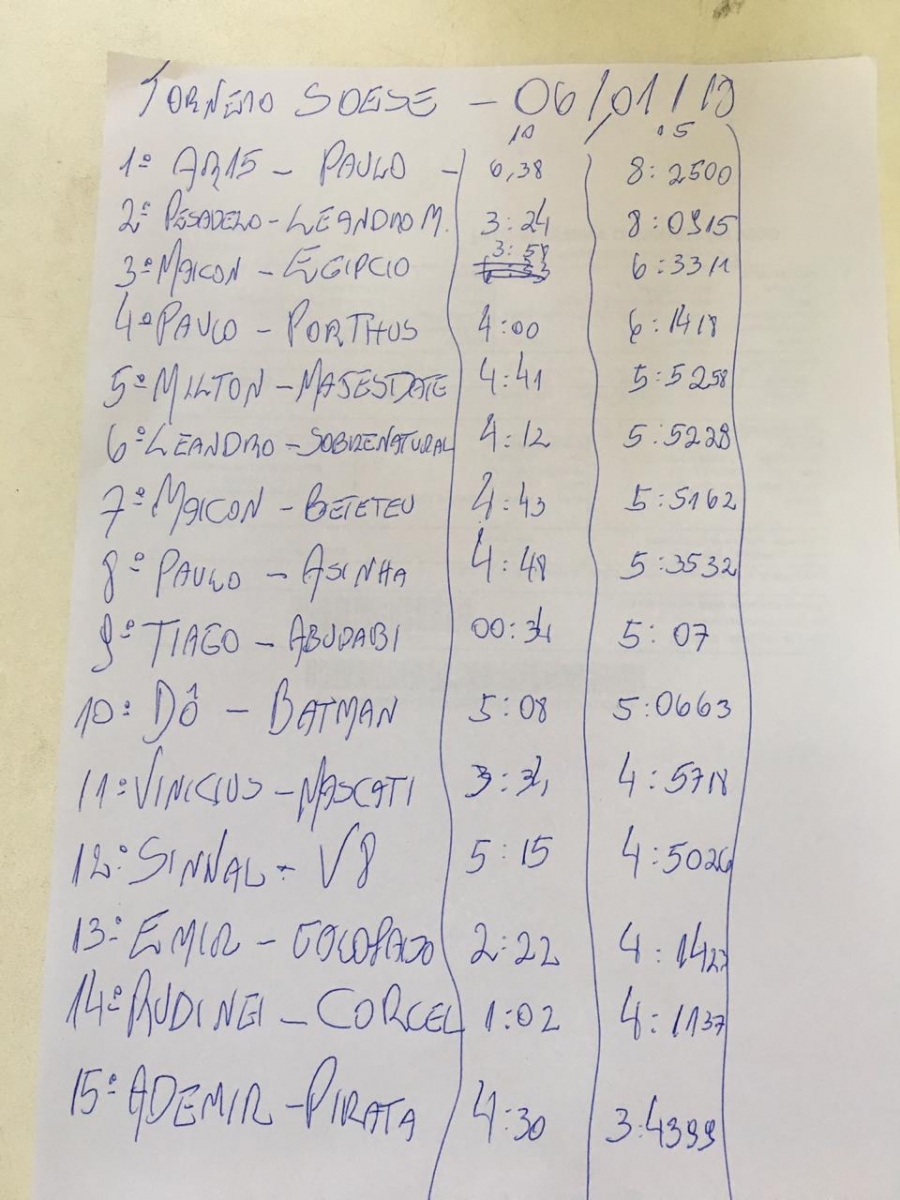 TORNEIO SOESE - 06/01/19
10 15
1º AR15 - PAULO - 6,38 8:2500
2º PESADELO - LEANDRO M. 3:24 8:0915
3º MAICON - EGIPCIO 3:58 6:3311
4º PAULO - PORTHUS 4:00 6:1418
5º MILTON - MAJESDATE 4:41 5:5258
6º LEANDRO - SOBRENATURAL 4:12 5:5228
7º MAICON - BETETEU 4:43 5:5162
8º PAULO - ASINHA 4:48 5:3532
9º TIAGO - ABUDABI 00:34 5:07
10º DÔ - BATMAN 5:08 5:0663
11º VINICIUS - MASCATI 3:34 4:5718
12º SINNAL - V8 5:15 4:5026
13º EMIR - 2:22 4:1423
14º RUDINEI - CORCEL 1:02 4:1137
15º ADEMIR - PIRATA 4:30 3:4399